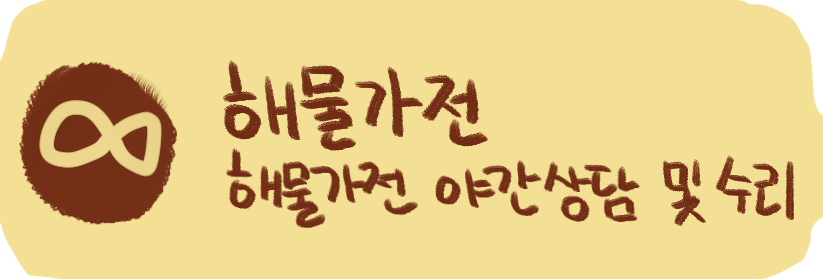 해물가전
해물가전 야간상담 및 수리